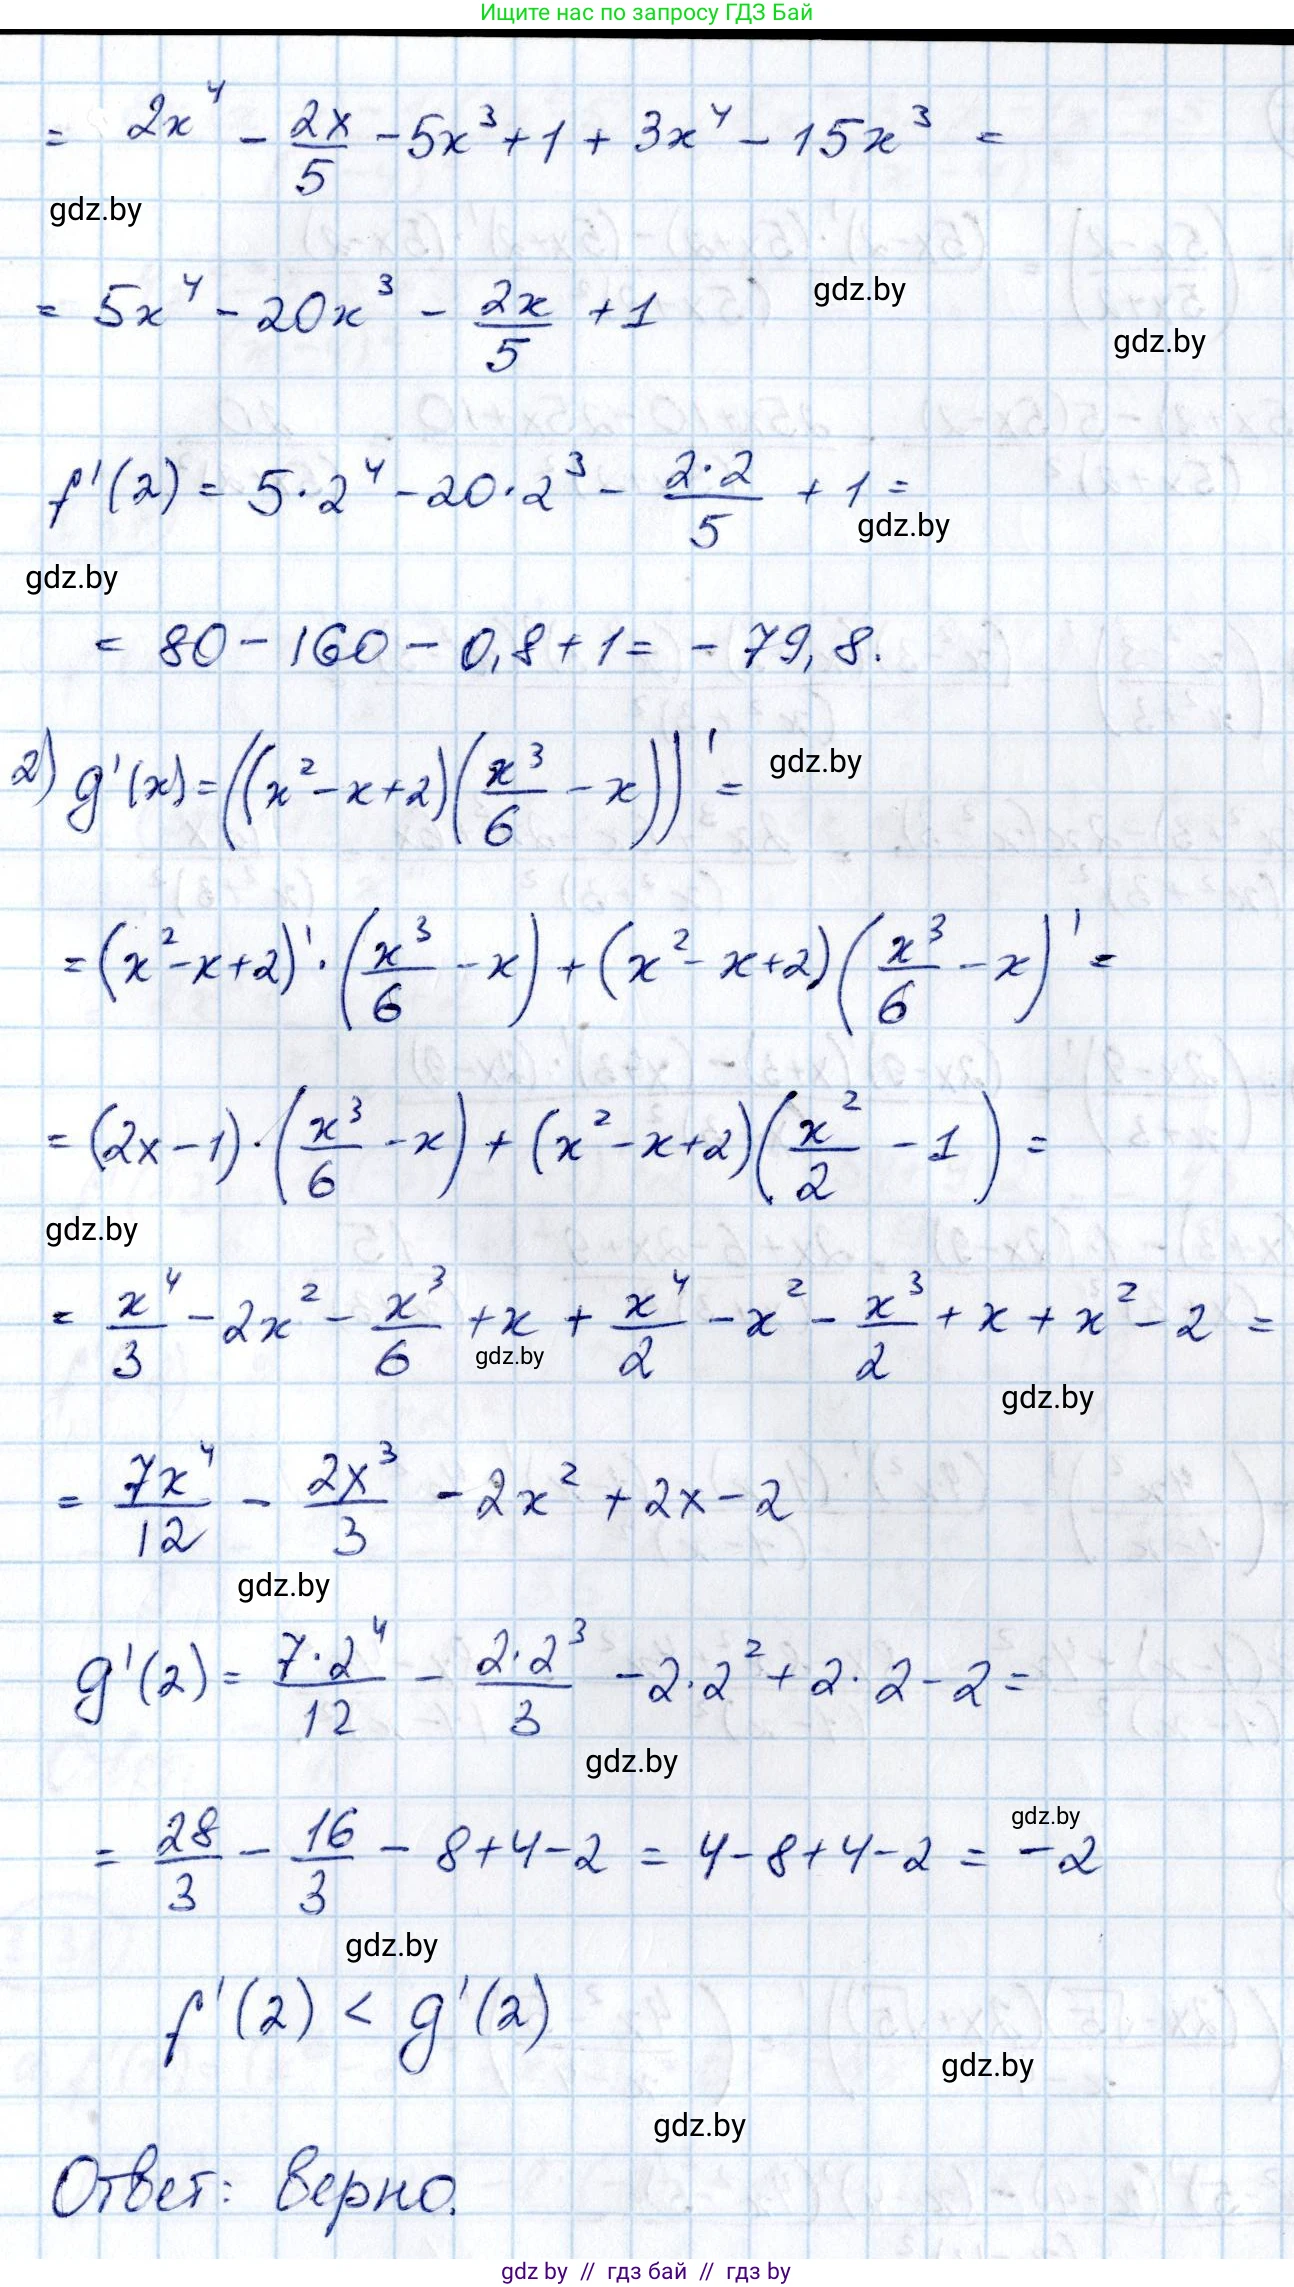 Ищите нас по запросу ГДЗ Бай
= 2x⁴ - 2x/5 - 5x³ + 1 + 3x⁴ - 15x³ =
gdz.by
= 5x⁴ - 20x³ - 2x/5 + 1
gdz.by
gdz.by
f'(2) = 5·2⁴ - 20·2³ - 2·2/5 + 1 =
gdz.by
gdz.by
= 80 - 160 - 0,8 + 1 = - 79,8.
2) g'(x) = ((x² - x + 2)(x³/6 - x))' =
gdz.by
= (x² - x + 2)'·(x³/6 - x) + (x² - x + 2)(x³/6 - x)' =
= (2x - 1)·(x³/6 - x) + (x² - x + 2)(x²/2 - 1) =
gdz.by
= x⁴/3 - 2x² - x³/6 + x + x⁴/2 - x² - x³/2 + x + x² - 2 =
gdz.by
gdz.by
= 7x⁴/12 - 2x³/3 - 2x² + 2x - 2
gdz.by
g'(2) = 7·2⁴/12 - 2·2³/3 - 2·2² + 2·2 - 2 =
gdz.by
gdz.by
= 28/3 - 16/3 - 8 + 4 - 2 = 4 - 8 + 4 - 2 = -2
gdz.by
f'(2) < g'(2)
gdz.by
gdz.by
Ответ: верно.
gdz.by // гдз бай // гдз by